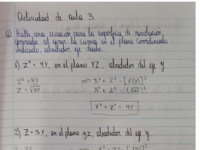 Actividad de aula 3.
① Halla una ecuación para la superficie de revolución,
generada al girar la curva en el plano coordenado
indicado, alrededor eje dado.
1) z² = 4y, en el plano yz, alrededor del eje y
z² = 4y ⇒ x² + z² = [r(y)]²
z = √4y ⇒ x² + z² = (√4y)²
x² + z² = 4y
2) z = 3y, en el plano yz, alrededor del eje y